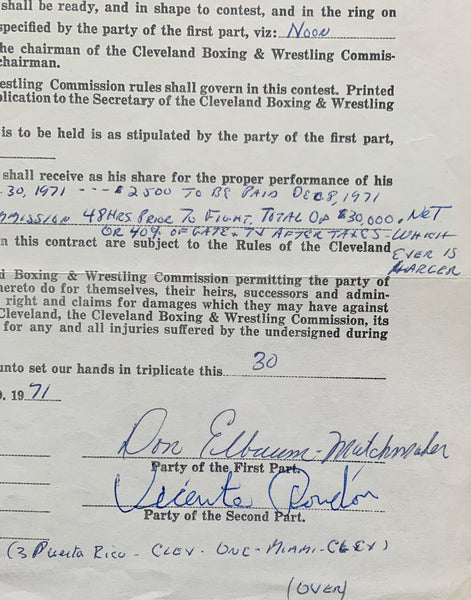 shall be ready, and in shape to contest, and in the ring on
specified by the party of the first part, viz: Noon
he chairman of the Cleveland Boxing & Wrestling Commis-
chairman.
estling Commission rules shall govern in this contest. Printed
plication to the Secretary of the Cleveland Boxing & Wrestling
is to be held is as stipulated by the party of the first part,
shall receive as his share for the proper performance of his
. 30, 1971 --- $2500 TO BE PAID DEC 8, 1971
mmission 48 HRS PRIOR TO FIGHT. TOTAL OF $30,000. NET
OR 40% OF GATE & TV AFTER TAXES - WHICH
EVER IS
LARGER
n this contract are subject to the Rules of the Cleveland
d Boxing & Wrestling Commission permitting the party of
hereto do for themselves, their heirs, successors and admin-
right and claims for damages which they may have against
Cleveland, the Cleveland Boxing & Wrestling Commission, its
for any and all injuries suffered by the undersigned during
unto set our hands in triplicate this 30
. 1971
Don Elbaum - Matchmaker
Party of the First Part.
Vicente Rondón
Party of the Second Part.
(3 Puerto Rico - CLEV - ONE - MIAMI - CLEV)
(OVER)